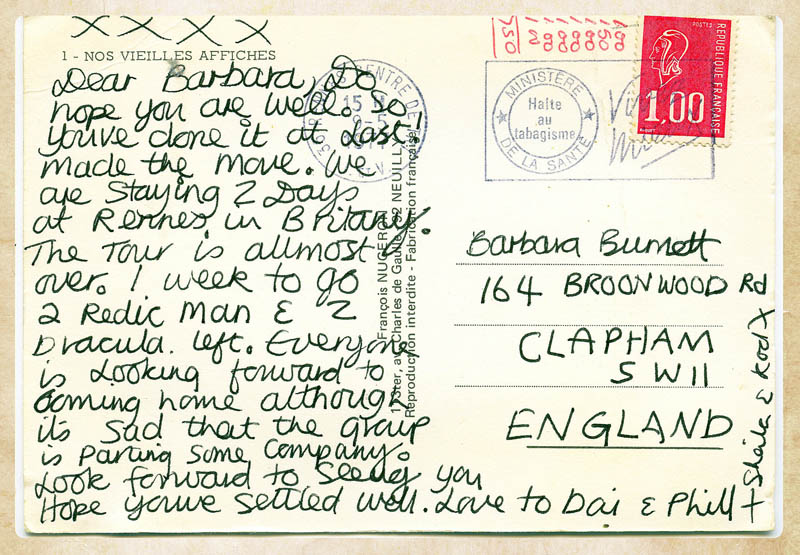 XXXX
1 - NOS VIEILLES AFFICHES
Dear Barbara, Do
hope you are well. So
youve done it at last!
made the move. We
are staying 2 Days
at Rennes in Britany.
The Tour is allmost
over. 1 week to go
2 Redic Man & 2
Dracula. left. Everyone
is Looking forward to
coming home although
its sad that the group
is parting some company.
Look forward to seeing you
Hope youve settled well. Love to Dai & Phill +
Sheila & Rod X
François NUGERON
ter, av. Charles de Gaulle, 92 NEUILLY
Reproduction interdite - Fabrication française
CENTRE DE
15 H
9-5
MINISTÈRE
DE LA SANTÉ
Halte
au
tabagisme
POSTES
RÉPUBLIQUE FRANÇAISE
1,00
Barbara Burnett
164 BROONWOOD Rd
CLAPHAM
SW11
ENGLAND